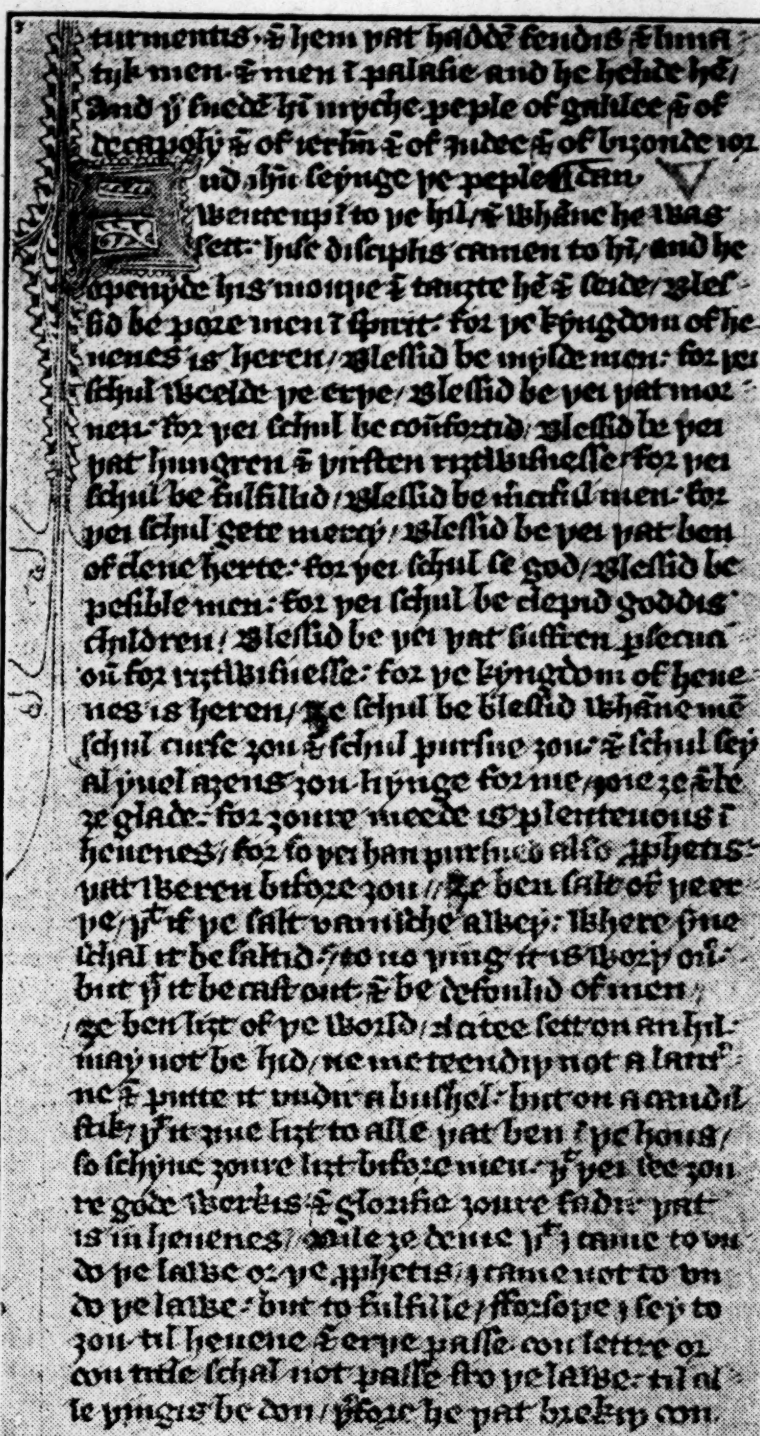 turmentis · ⁊ hem þat haddẽ fendis ⁊ luna
tyk men · ⁊ men ĩ palasie and he helide hẽ/
And þ͛ sueden hĩ myche peple of galilee ⁊ of
decapoly ⁊ of ierłm ⁊ of iudee ⁊ of biȝonde ior
And ihũ seynge þe peple dan
wente up ĩ to þe hil/ ⁊ whãne he was
sett: hise disciplis camen to hĩ/ and he
openyde his mouþe ⁊ tauȝte hẽ ⁊ seide/ Bles
sid be pore men ĩ spirit: for þe kyngdom of he
uenes is heren/ Blessid be mylde men: for þei
schul weelde þe erþe/ Blessid be þei þat mor
nen: for þei schul be coũfortid/ Blessid be þei
þat hungren ⁊ þirsten riȝtwisnesse: for þei
schul be fulfillid/ Blessid be m͛ciful men: for
þei schul gete mercy/ Blessid be þei þat ben
of clene herte: for þei schul se god/ Blessid be
pesible men: for þei schul be clepid goddis
children/ Blessid be þei þat suffren ꝑsecuci
oũ for riȝtwisnesse: for þe kyngdom of heue
nes is heren/ Ȝe schul be blessid whãne mẽ
schul curse ȝou ⁊ schul pursue ȝou: ⁊ schul sey
al yuel aȝens ȝou liynge for me/ ioie ȝe ⁊ be
ȝe glade: for ȝoure meede is plenteuous ĩ
heuenes/ for so þei han pursued also ꝓphetis:
þat weren bifore ȝou // Ȝe ben salt of þe er
þe/ þͭ if þe salt vanische awey: where ynne
schal it be saltid: to no þing it is worþ ou͛:
but þͭ it be cast out ⁊ be defoulid of men/
ȝe ben liȝt of þe world/ a citee sett on an hil:
may not be hid/ ne me teendiþ not a lant͛
ne ⁊ putte it vndir a buschel: but on a candil
stik/ þͭ it ȝiue liȝt to alle þat ben ĩ þe hous/
so schyne ȝoure liȝt bifore men: þͭ þei see ȝou
re gode werkis ⁊ glorifie ȝoure fadir þat
is in heuenes/ Nile ȝe deme þͭ I came to vn
do þe lawe or þe ꝓphetis/ I came not to vn
do þe lawe: but to fulfille/ fforsoþe I sey to
ȝou til heuene ⁊ erþe passe: oon lettre or
oon title schal not passe fro þe lawe: til al
le þingis be don/ þ͛fore he þat brekiþ oon